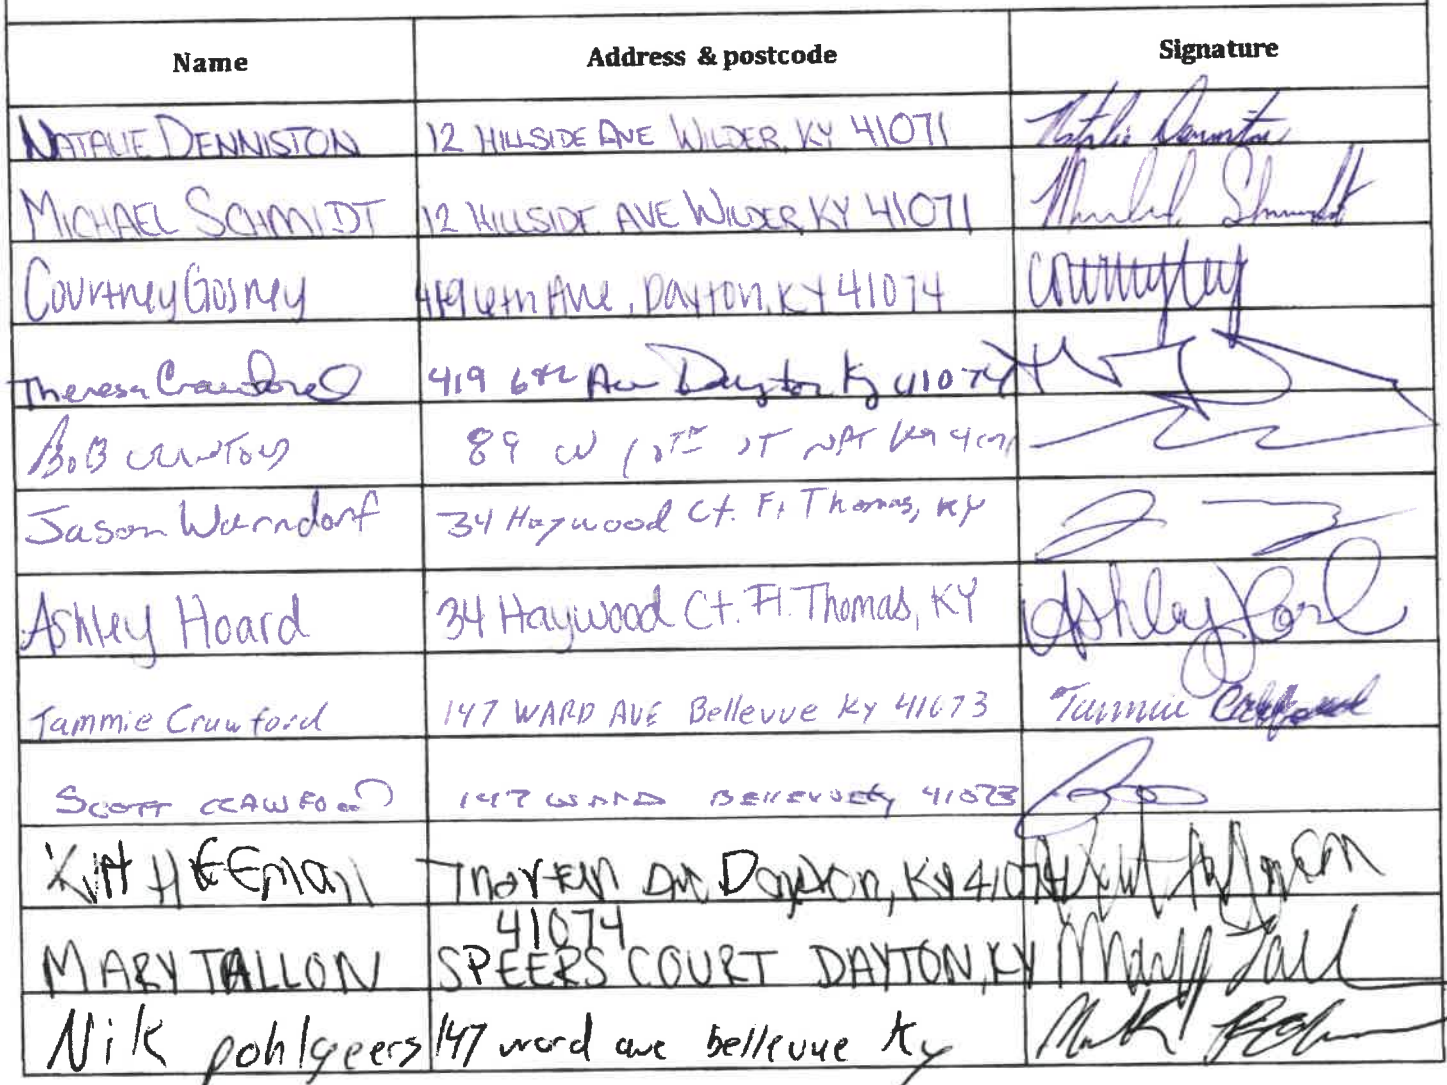 Name Address & postcode Signature
NATALIE DENNISTON 12 HILLSIDE AVE WILDER, KY 41071 Natalie Denniston
MICHAEL SCHMIDT 12 HILLSIDE AVE WILDER KY 41071 Schmidt
Courtney Gosney 419 6th Ave, Dayton, KY 41074
Theresa Crawford 419 6th Ave Dayton Ky 41074
BOB 89 W ST NPT Ky
Jason Warndorf 34 Haywood Ct. Ft Thomas, KY
Ashley Hoard 34 Haywood Ct. Ft. Thomas, KY Ashley Hoard
Tammie Crawford 147 WARD AVE Bellevue Ky 41073 Tammie Crawford
SCOTT CRAWFORD 147 WARD BELLEVUE Ky 41073
HEEMAN Dayton, KY 41074
41074
MARY TALLON SPEERS COURT DAYTON, KY Mary Tall
Nik pohlgeers 147 ward ave bellevue Ky